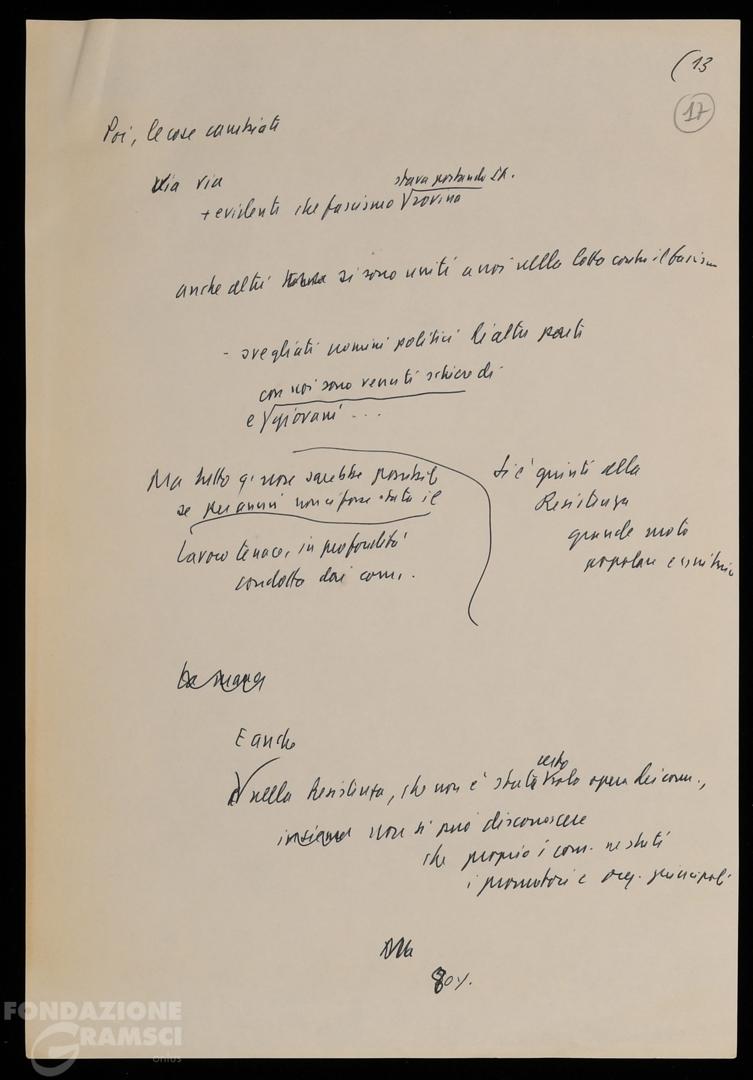 (13
17
Poi, le cose cambiate
Via via
stava portando It.
+ evidente che fascismo rovina
anche altri si sono uniti a noi nella lotta contro il fascism
- svegliati uomini politici di altri parti
con noi sono venuti schiere di
e giovani ...
Ma tutto q. non sarebbe possibil
se per anni non ci fosse stato il
lavoro tenace, in profondità
condotto dai com.
Si è giunti alla
Resistenza
grande moto
popolare e unitario
E anche
certo
nella Resistenza, che non è stata solo opera dei com.,
non si può disconoscere
che proprio i com. ne stati
i promotori e org. principali
80%.
FONDAZIONE
GRAMSCI
onlus